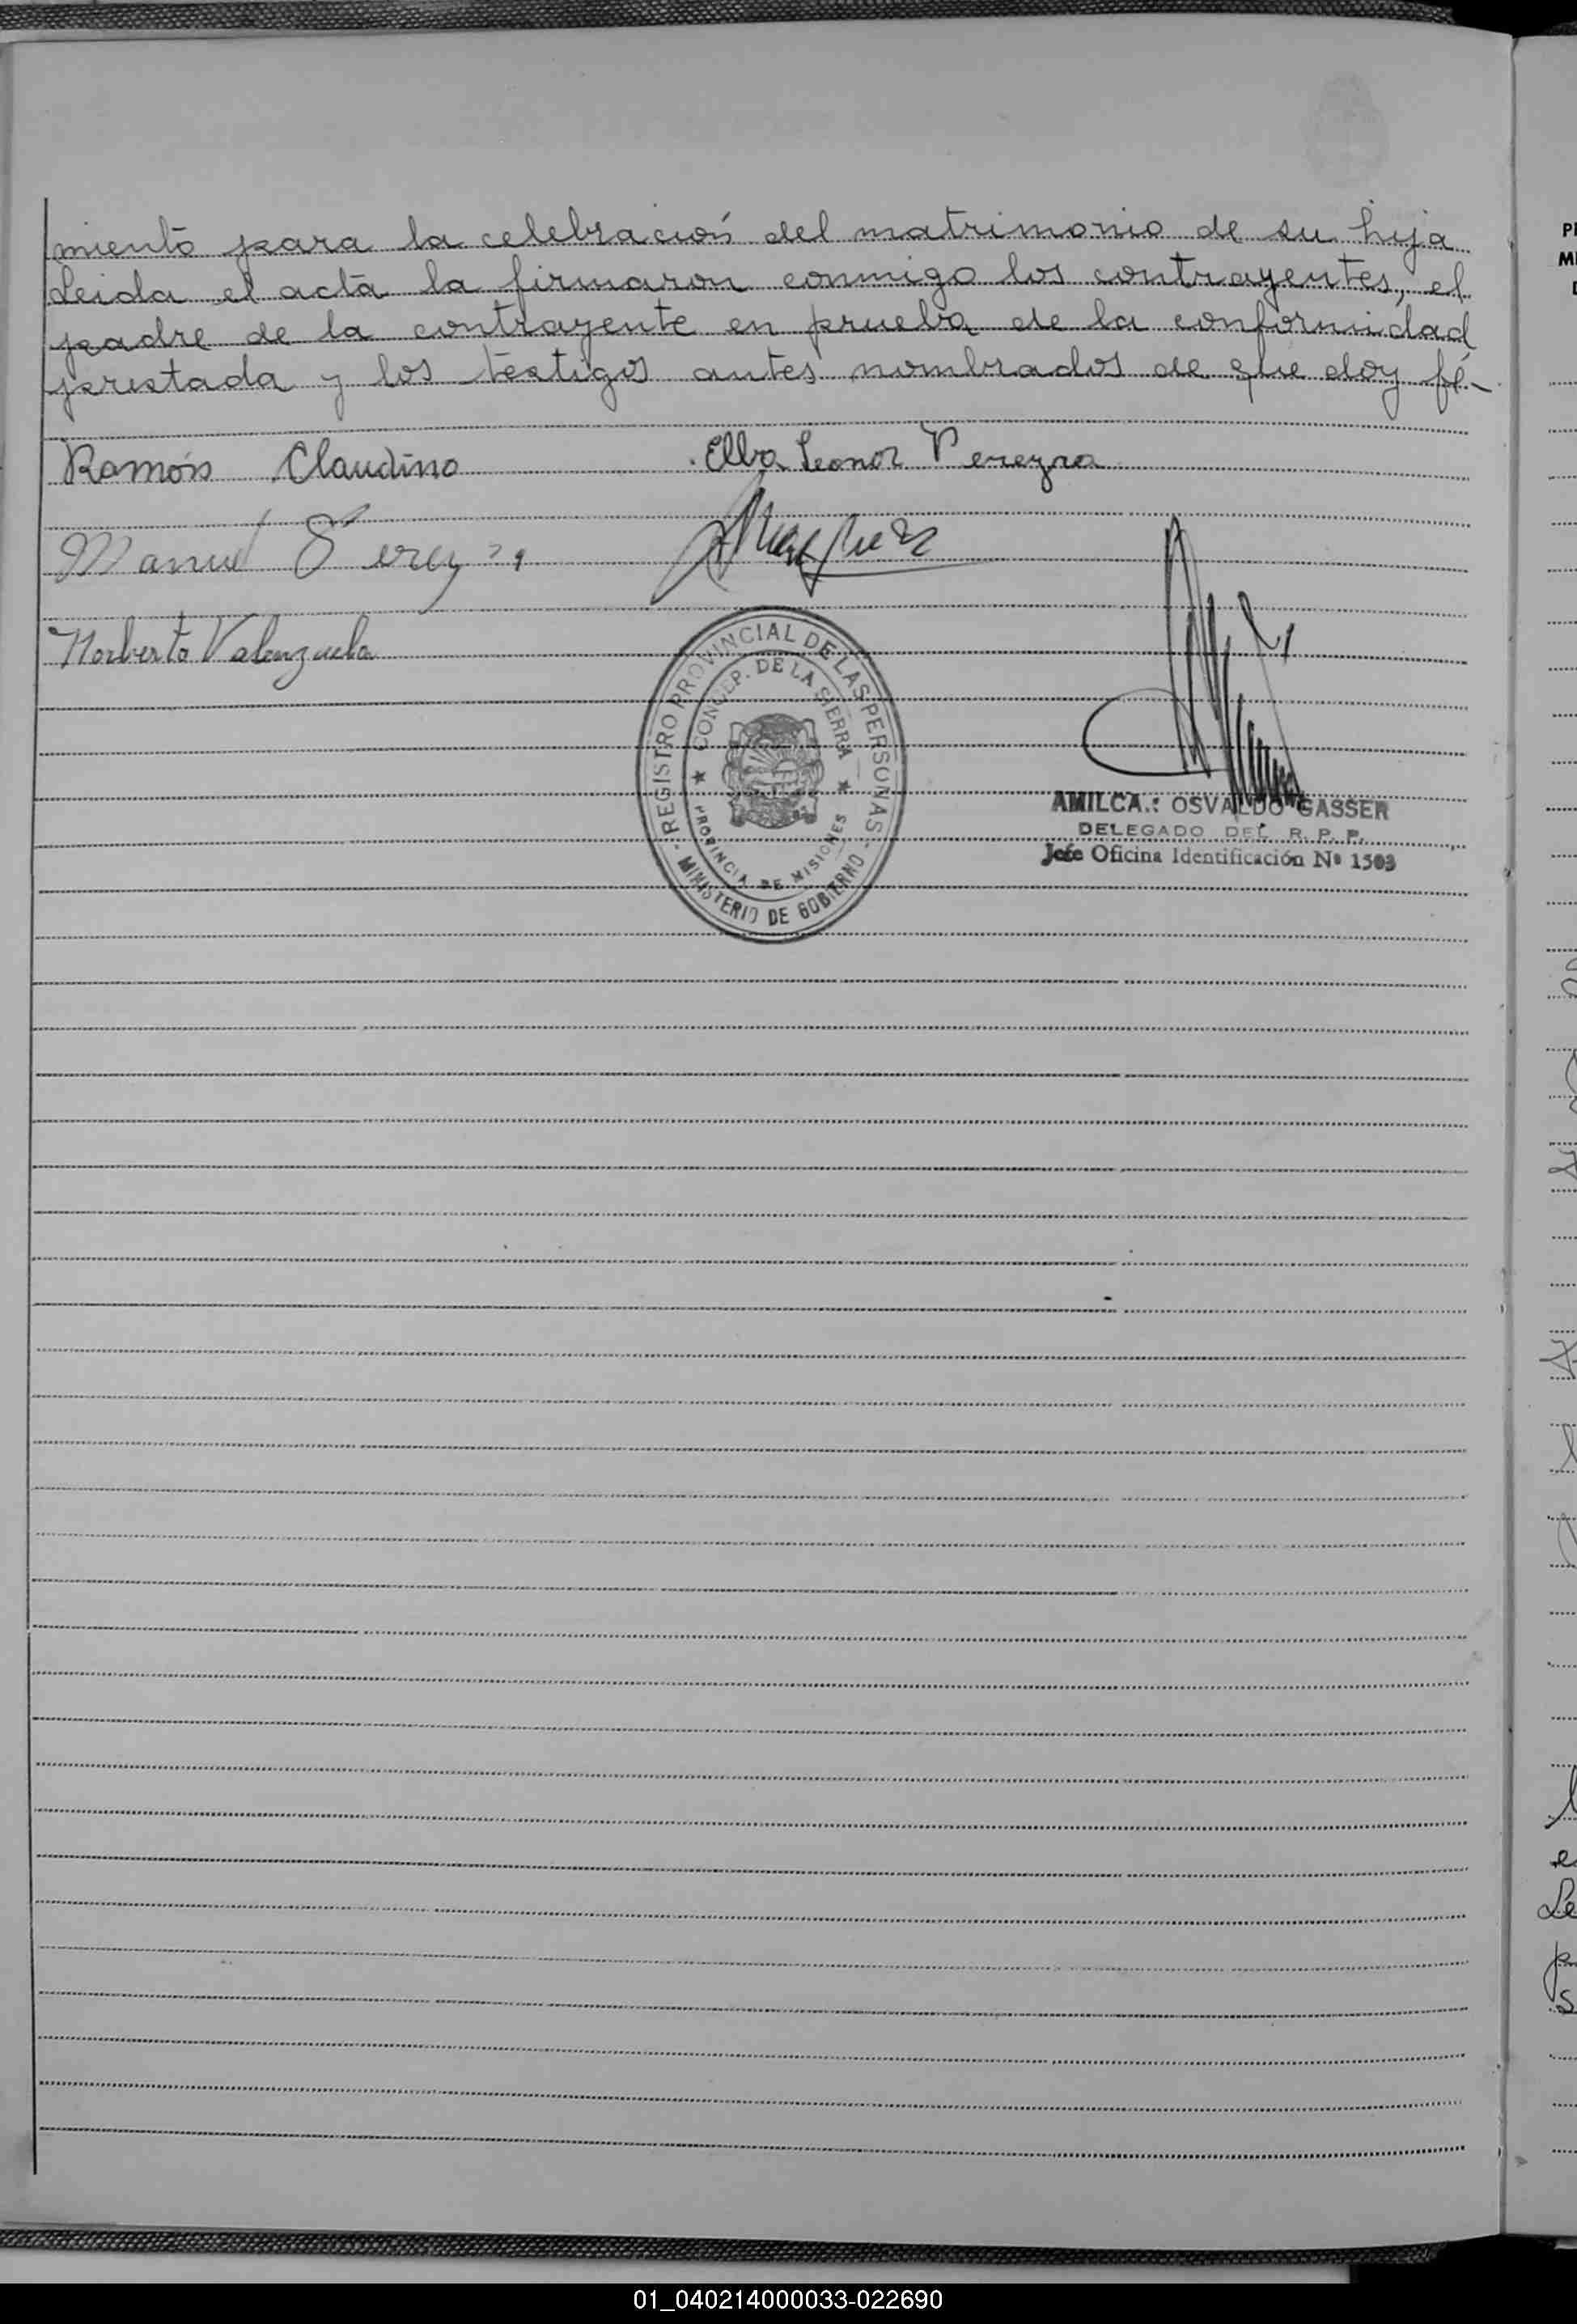 miento para la celebración del matrimonio de su hija
Leida el acta la firmaron conmigo los contrayentes, el
padre de la contrayente en prueba de la conformidad
prestada y los testigos antes nombrados de que doy fé-
Ramón Claudino
Elba Leonor Pereyra
Manuel Pereyra
Norberto Valenzuela
REGISTRO PROVINCIAL DE LAS PERSONAS
CONCEP. DE LA SIERRA
PROVINCIA DE MISIONES
- MINISTERIO DE GOBIERNO -
AMILCA.: OSVALDO GASSER
DELEGADO DEL R. P. P.
Jefe Oficina Identificación Nº 1503
01_040214000033-022690